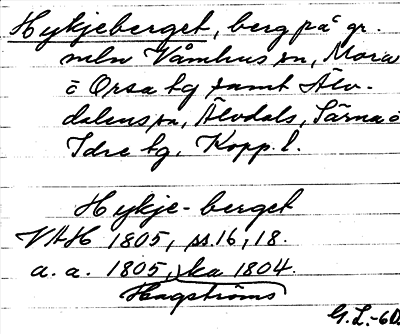 Hykjeberget, berg på gr.
mln Våmhus sn, Mora
o Orsa tg samt Älv-
dalens sn, Älvdals, Särna o
Idre tg, Kopp. l.
Hykje-berget
VAH 1805, ss. 16, 18.
a. a. 1805, ka 1804.
Hagströms
G. L. -60.